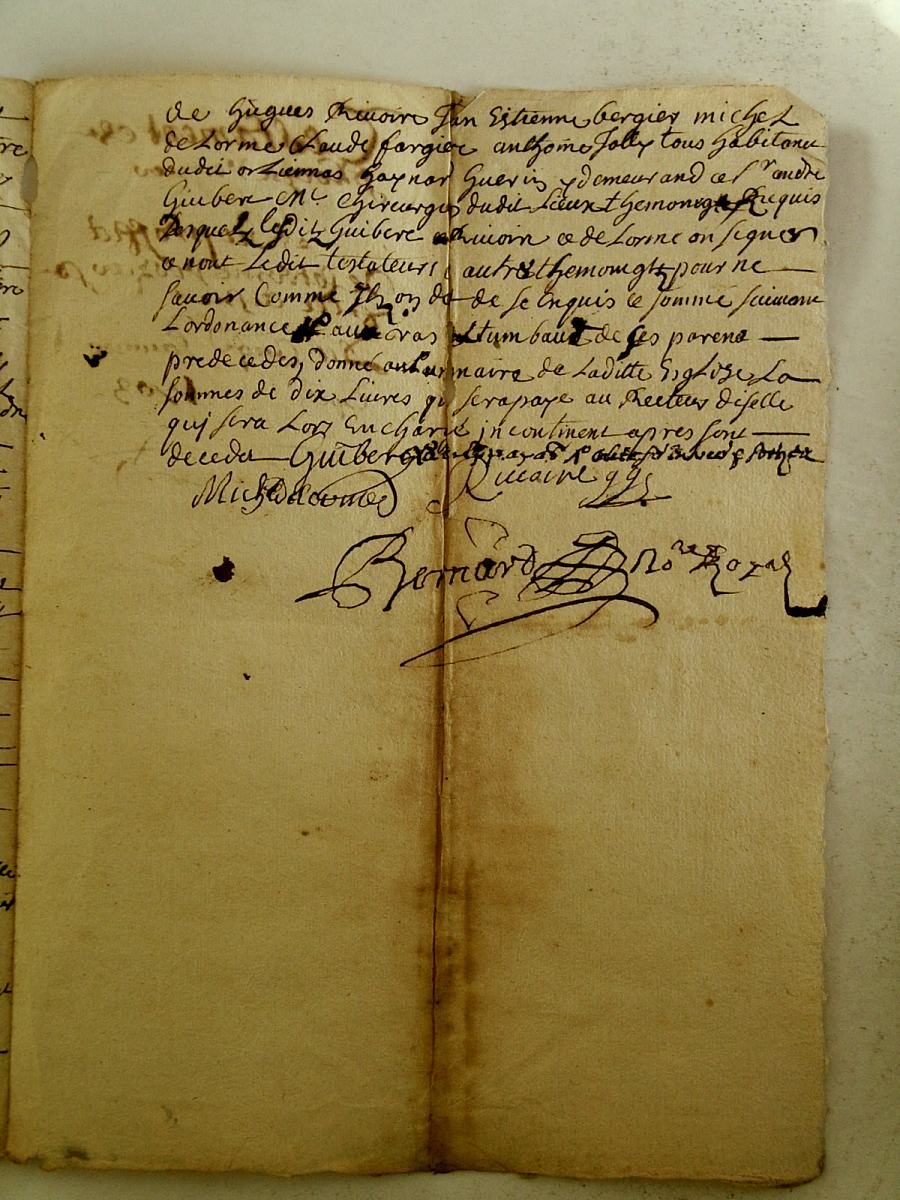 de Hugues Riuoire Jan Estienne bergier michel
de Lorme Claude fargier anthoine Jolly tous habitans
dudit orliennas gaynar Guerin y demeurand et Sr andre
Guibert Me Chireurgin dudit Lieux thémoingtz Requis
Desquelz lesditz Guibert Riuoire et de Lorme on signer
et nont Ledit testateurs autres themoingtz pour ne
sauoir Comme Ilz on dit de se enquis et sommé suiuant
Lordonance tumbaut de ses parens
predecedes, donne au Luminaire de Laditte Esglize La
sommes de dix Liures qui sera paye au Recteur diselle
quj sera Lors En charge jncontinent apres sont
deceda Guibert
Michel delorme Riuoire
Bernard Nore Royal